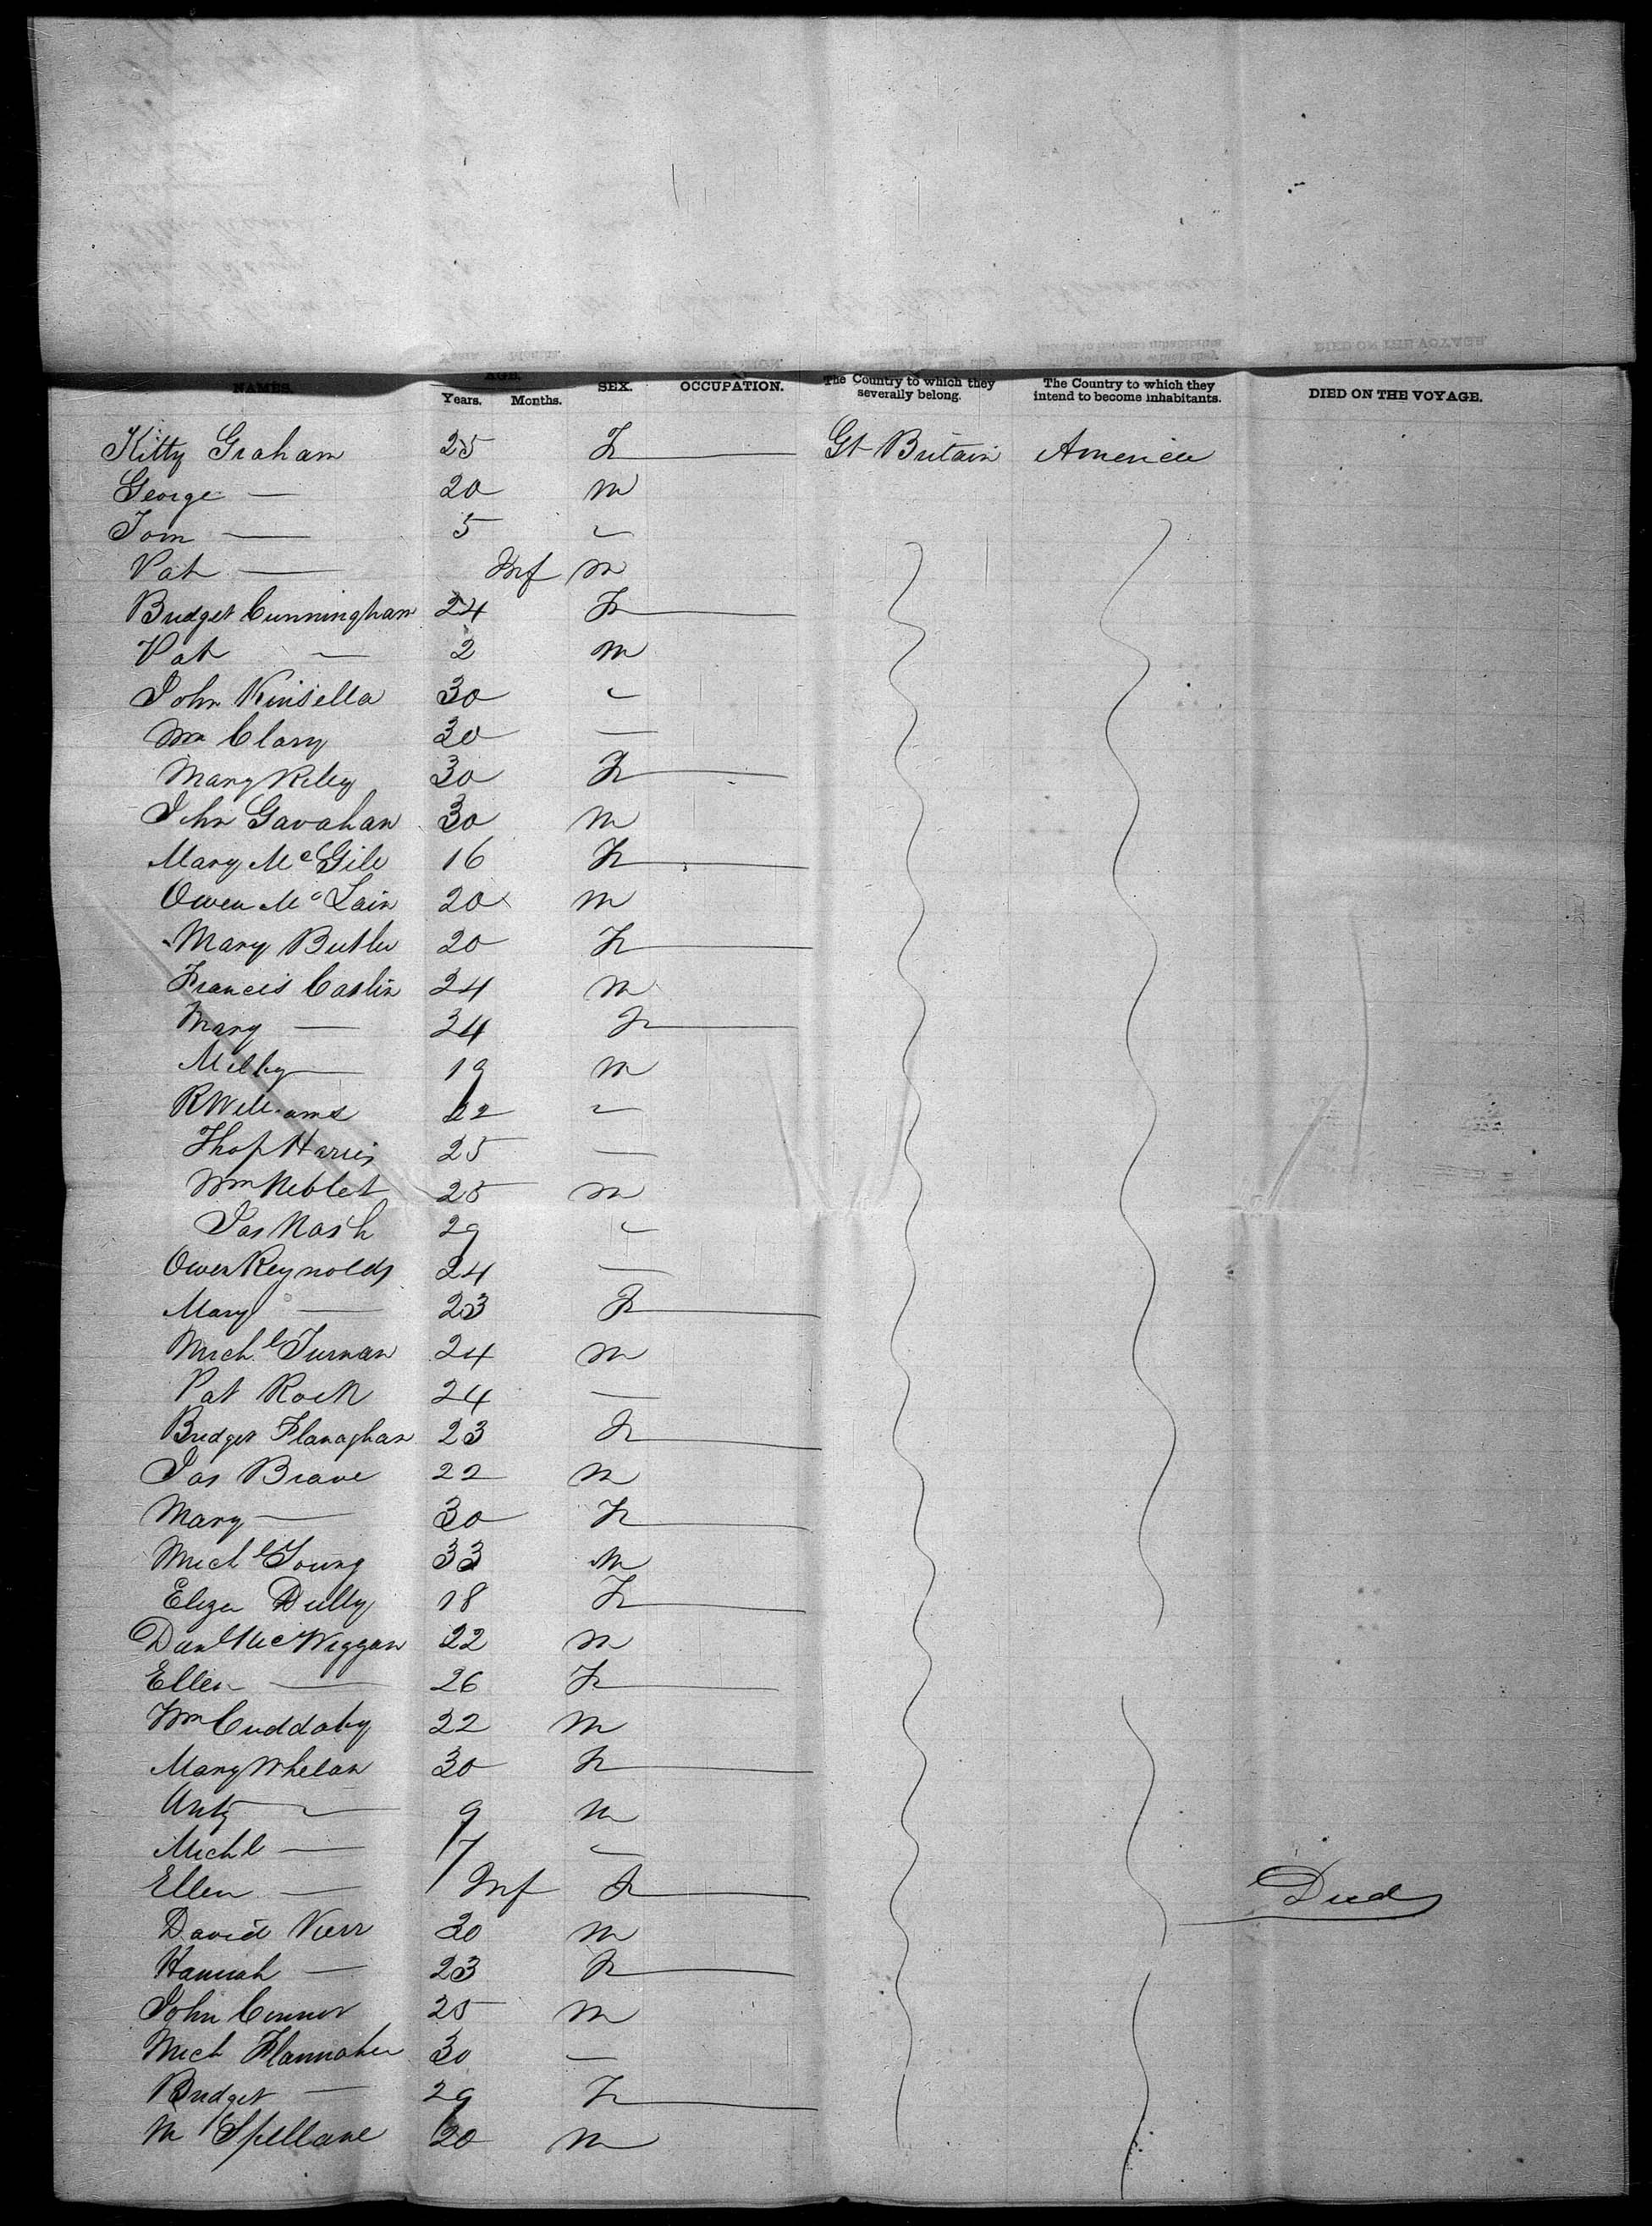 NAMES. AGE. Years. Months. SEX. OCCUPATION. The Country to which they severally belong. The Country to which they intend to become inhabitants. DIED ON THE VOYAGE.
Kitty Graham 25 F Gt Britain America
George — 20 m
Tom — 5 〃
Pat — Inf m
Bridget Cunningham 24 F
Pat — 2 m
John Kinsella 30 〃
Wm Clary 30 —
Mary Riley 30 F
John Gavahan 30 m
Mary McGill 16 F
Owen McLain 20 m
Mary Butler 20 F
Francis Caslin 24 m
Mary — 24 F
Milky — 19 m
R Williams 22 〃
Thos Harris 25 —
Wm Neblet 25 m
Jas Nash 29 〃
Owen Reynolds 24 —
Mary — 23 F
Michl Turnan 24 m
Pat Rock 24 —
Bridget Flanaghan 23 F
Jas Brave 22 m
Mary — 30 F
Michl Young 33 m
Eliza Dully 18 F
Danl McWiggan 22 m
Ellen — 26 F
Wm Cuddahy 22 m
Mary Whelan 30 F
Anty — 9 m
Michl — 7 〃
Ellen — Inf F Died
David Kerr 20 m
Hannah — 23 F
John Connor 25 m
Mich Flannaher 30 —
Bridget — 29 F
M Spellane 20 m